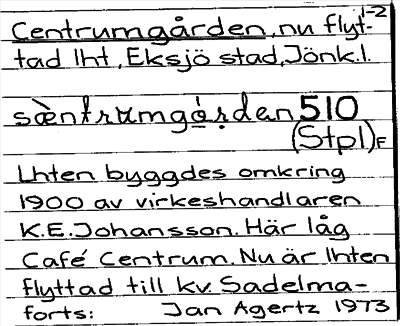 1-2
Centrumgården, nu flyt-
tad lht, Eksjö stad, Jönk.l.
sæ̀ntrumgǻrdan 510
(Stpl)F
Lhten byggdes omkring
1900 av virkeshandlaren
K.E. Johansson. Här låg
Café Centrum. Nu är lhten
flyttad till kv. Sadelma-
forts: Jan Agertz 1973